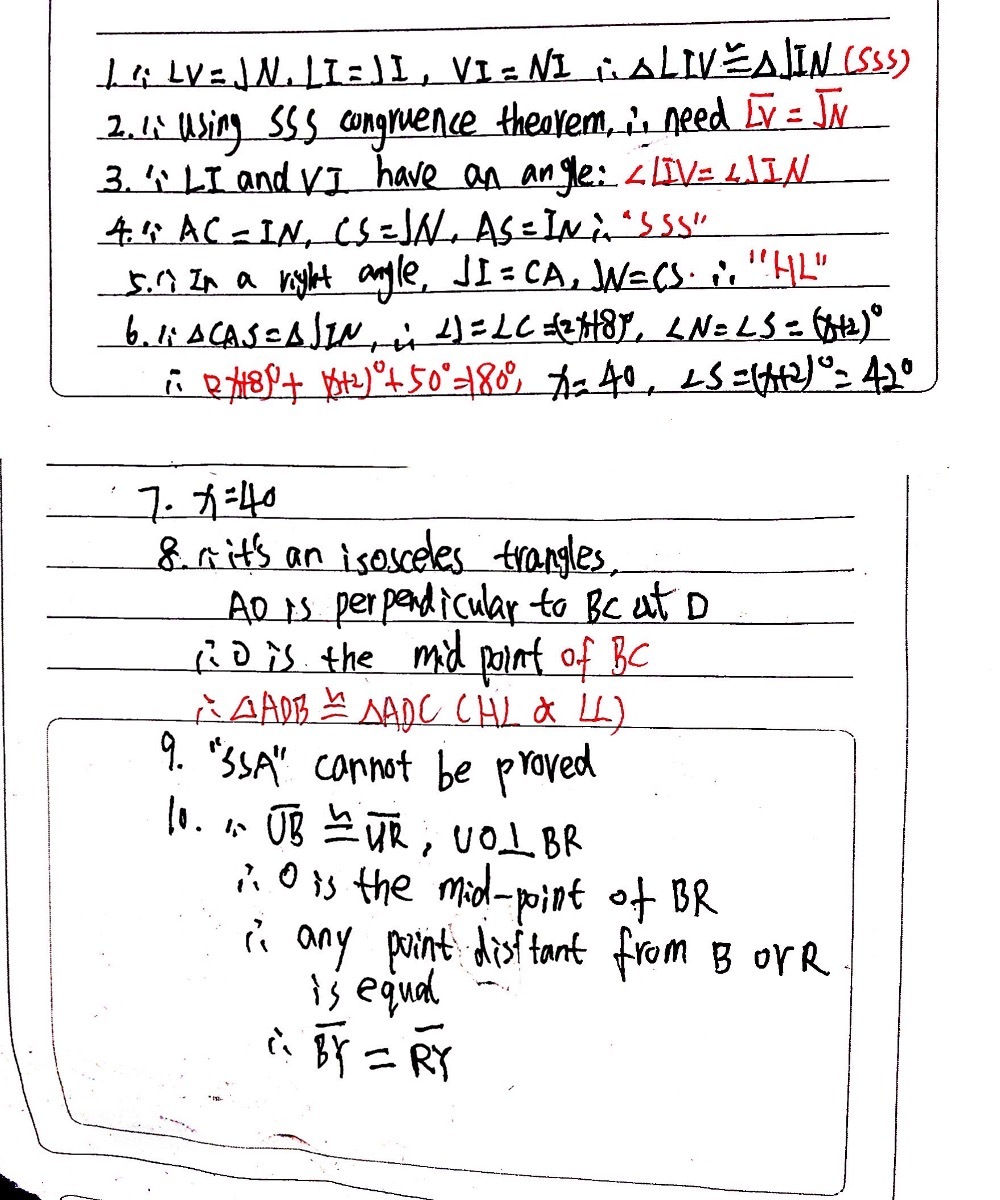 1. ∵ LV = JN. LI = JI, VI = NI ∴ △LIV ≌ △JIN (SSS)
2. ∵ Using SSS congruence theorem, ∴ need L̅V̅ = J̅N̅
3. ∵ LI and VI have an angle: ∠LIV = ∠JIN
4. ∵ AC = IN, CS = JN, AS = IN ∴ "SSS"
5. ∵ In a right angle, JI = CA, JN = CS. ∴ "HL"
6. ∵ △CAS = △JIN, ∴ ∠J = ∠C = (2x+18)°, ∠N = ∠S = (x+2)°
∴ (2x+18)° + (x+2)° + 50° = 180°, x = 40, ∠S = (x+2)° = 42°
7. x = 40
8. ∵ it's an isosceles trangles,
AD is perpendicular to BC at D
∴ D is the mid point of BC
∴ △ADB ≌ △ADC (HL & LL)
9. "SSA" cannot be proved
10. ∵ U̅B̅ ≌ U̅R̅, UO⊥BR
∴ O is the mid-point of BR
∴ any point disttant from B or R
is equal
∴ B̅Y̅ = R̅Y̅